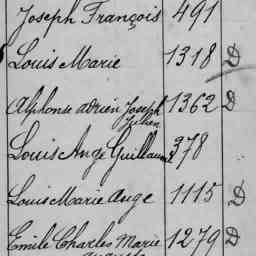 Joseph François 491
Louis Marie 1318 D
Alphonse Adrien Joseph 1362 D
Julien
Louis Ange Guillaume 378
Louis Marie Ange 1115 D
Emile Charles Marie 1279 D
Auguste